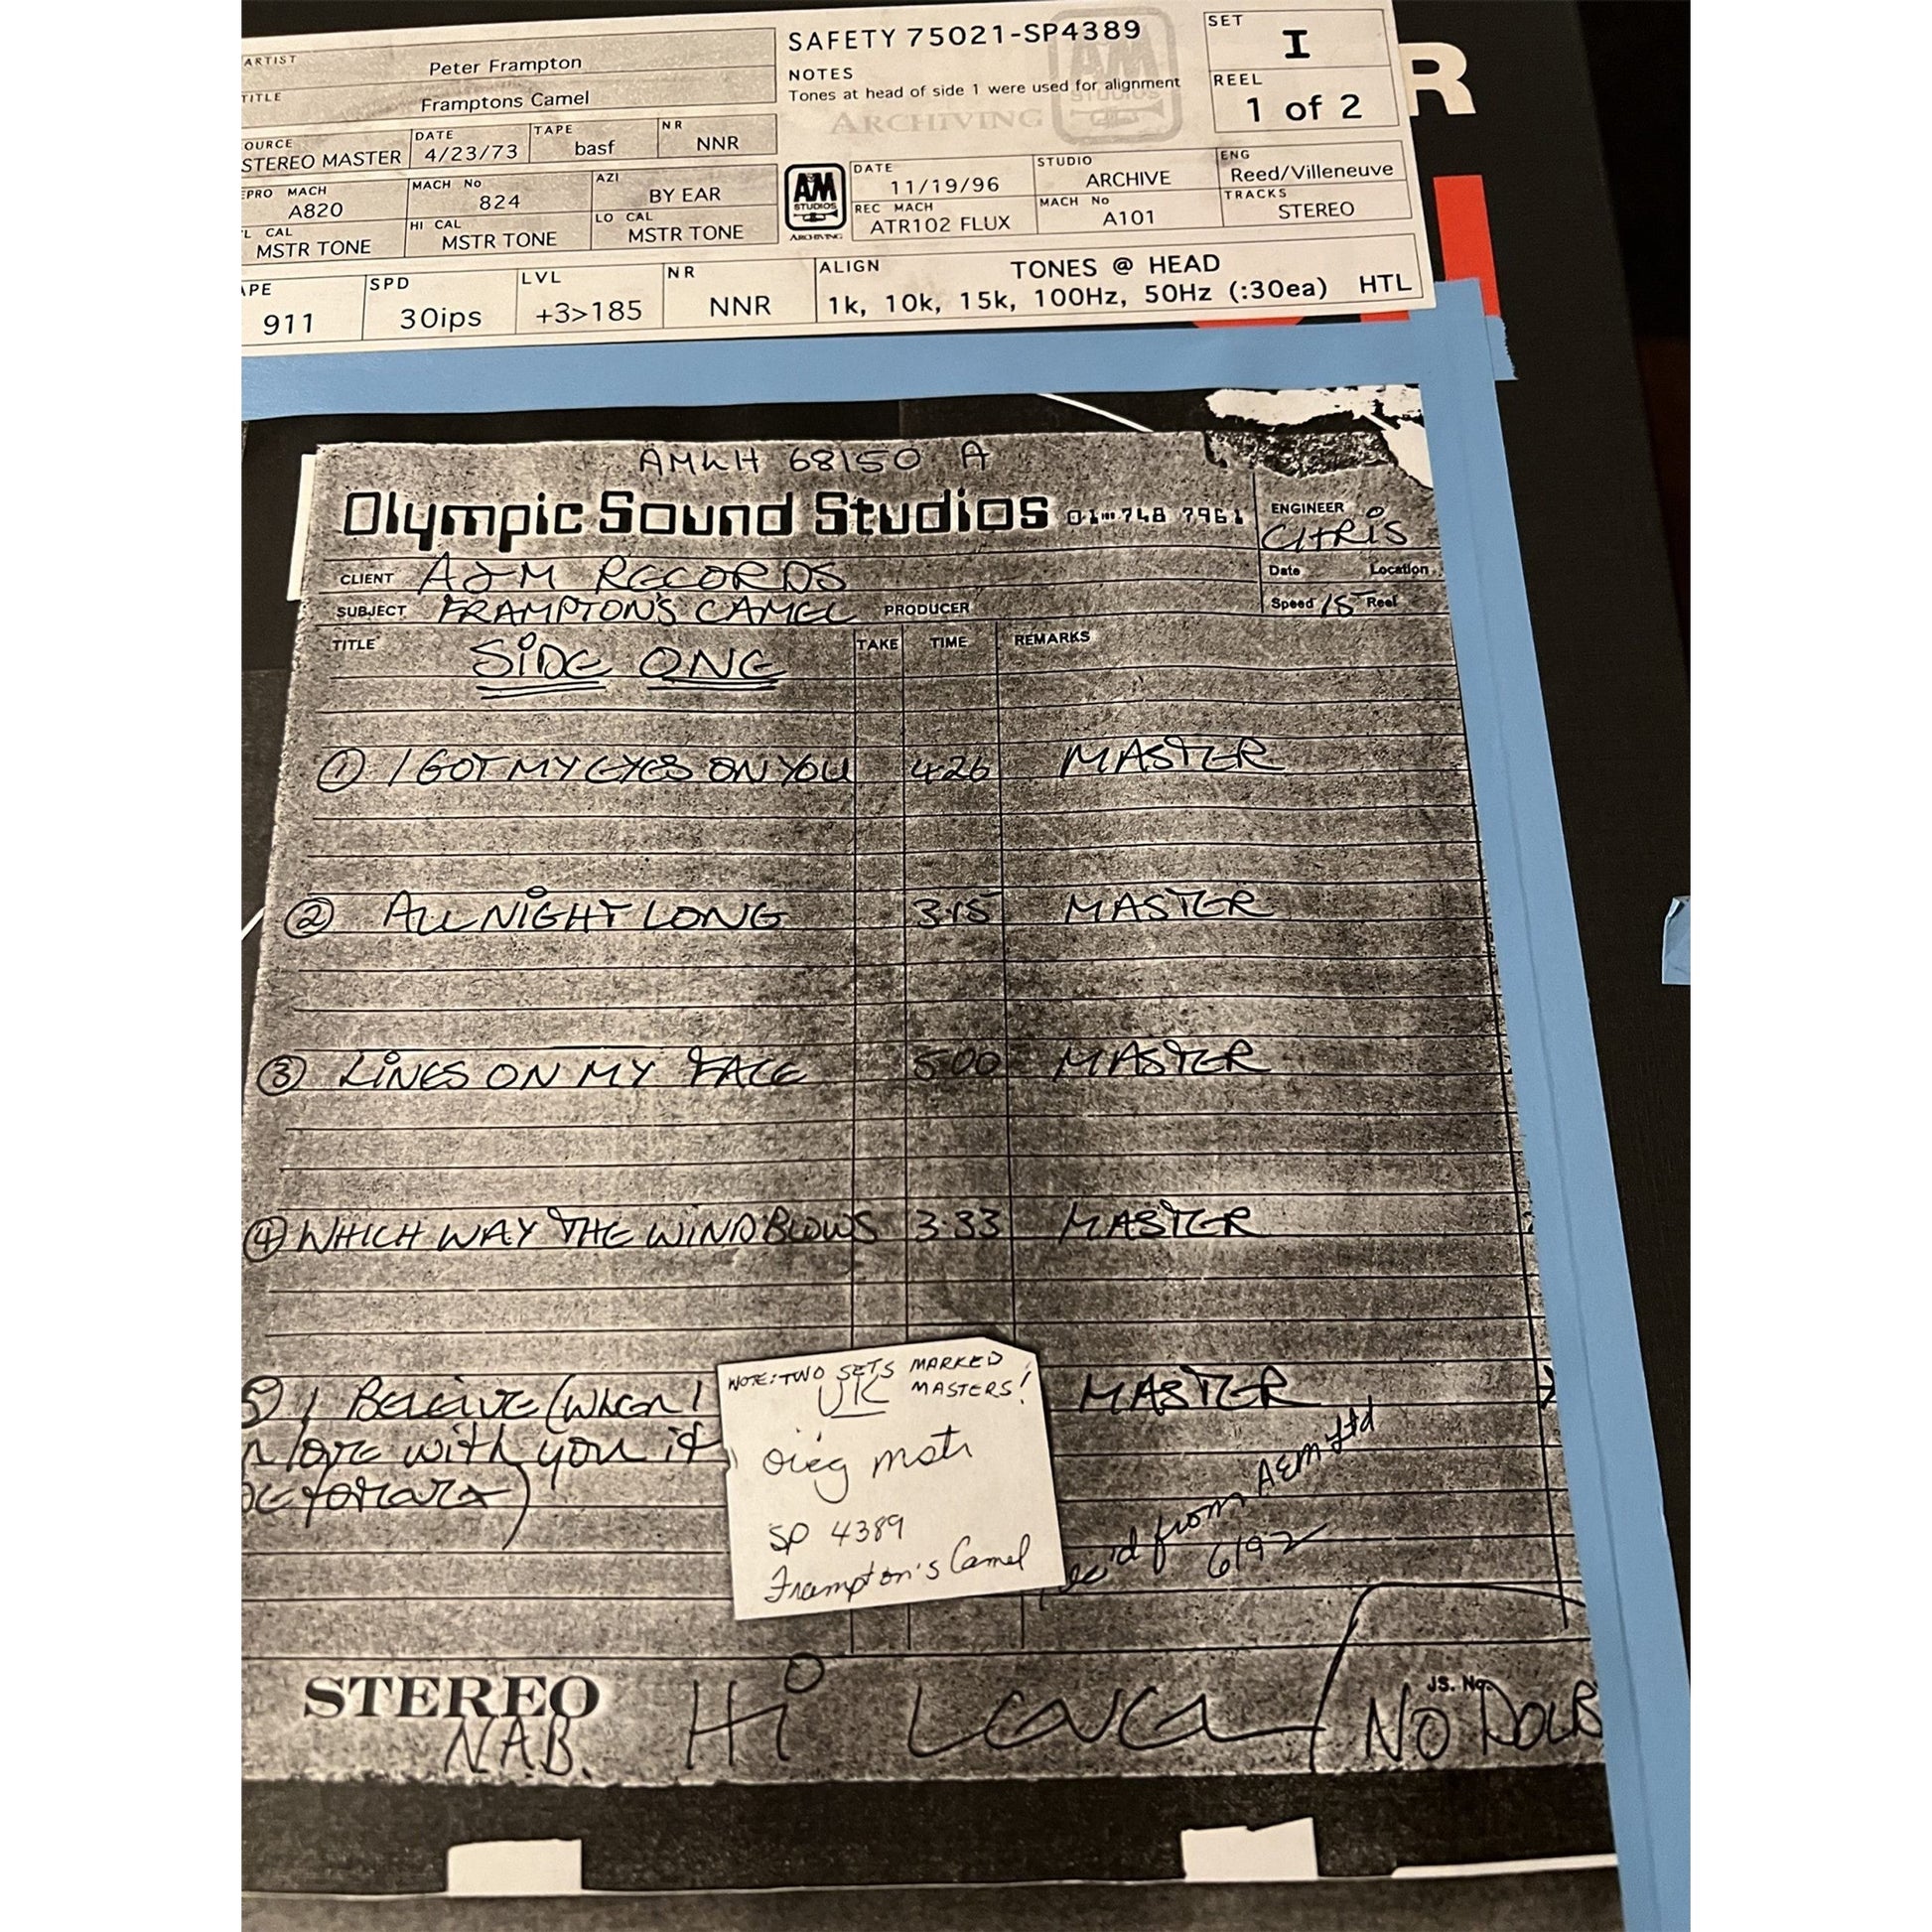 ARTIST Peter Frampton
TITLE Framptons Camel
OURCE STEREO MASTER DATE 4/23/73 TAPE basf NR NNR
EPRO MACH A820 MACH No 824 AZI BY EAR
L CAL MSTR TONE HI CAL MSTR TONE LO CAL MSTR TONE
APE 911 SPD 30ips LVL +3>185 NR NNR
SAFETY 75021-SP4389
NOTES
Tones at head of side 1 were used for alignment
A&M STUDIOS
ARCHIVING
SET I
REEL 1 of 2
A&M STUDIOS ARCHIVING
DATE 11/19/96 STUDIO ARCHIVE ENG Reed/Villeneuve
REC MACH ATR102 FLUX MACH No A101 TRACKS STEREO
ALIGN TONES @ HEAD
1k, 10k, 15k, 100Hz, 50Hz (:30ea) HTL
R
AMLH 68150 A
Olympic Sound Studios 01-748 7961
ENGINEER CHRIS
CLIENT A&M RECORDS
Date Location
SUBJECT FRAMPTON'S CAMEL PRODUCER
Speed 15 Reel
TITLE TAKE TIME REMARKS
SIDE ONE
① I GOT MY EYES ON YOU 4.26 MASTER
② ALL NIGHT LONG 3.15 MASTER
③ LINES ON MY FACE 5.00 MASTER
④ WHICH WAY THE WIND BLOWS 3.33 MASTER
⑤ I BELIEVE (WHEN I MASTER
N LOVE WITH YOU IT
BE FOREVER)
NOTE: TWO SETS MARKED
UK MASTERS!
orig mstr
SP 4389
Frampton's Camel
Rec'd from A&M Ltd
6/92
STEREO
N.A.B.
Hi Level
JS. No.
NO DOLB